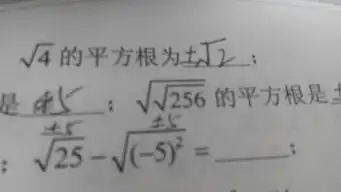 √4 的平方根为±√2;
是 ±5 ; √√256 的平方根是±
±5 ±5
; √25 − √(−5)² = ______;